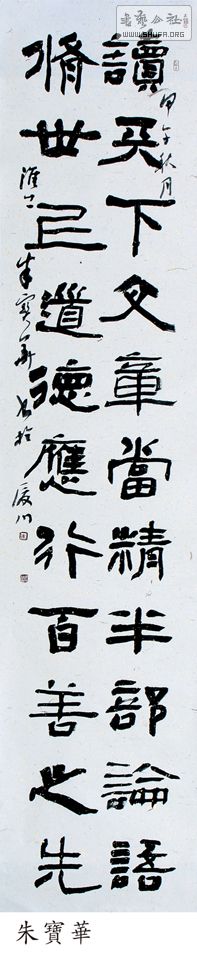 书艺公社
WWW.SHUFA.ORG
甲午秋月
讀天下文章當精半部論語
脩世道德應行百善之先
淮上朱寶華書於
朱寶華